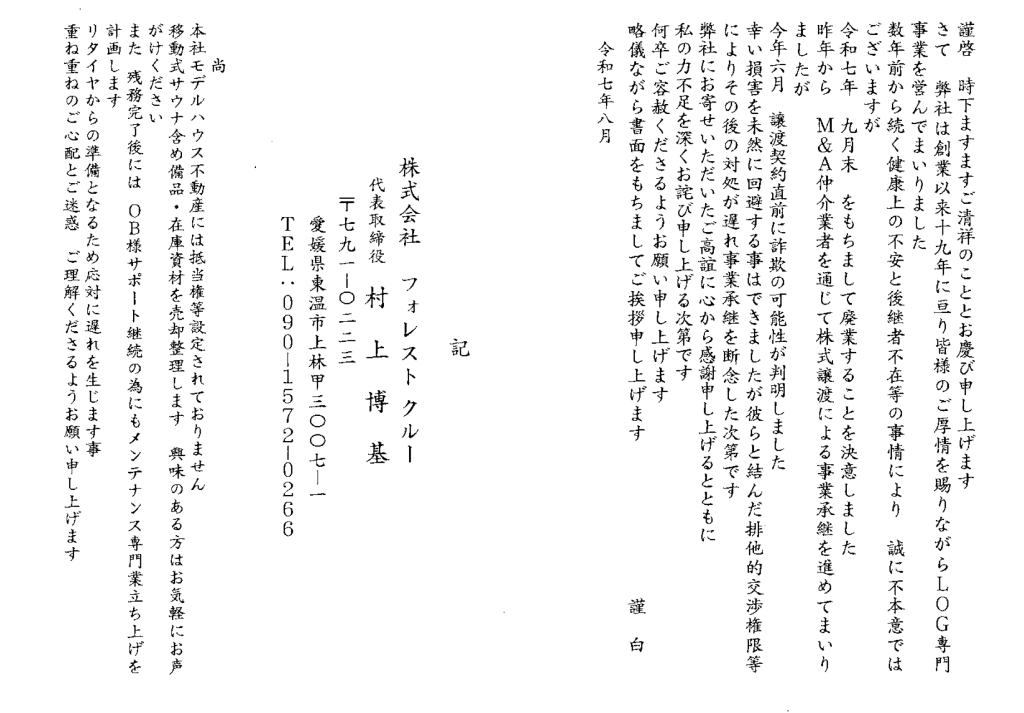 謹啓　時下ますますご清祥のこととお慶び申し上げます
さて　弊社は創業以来十九年に亘り皆様のご厚情を賜りながらLOG専門
事業を営んでまいりました
数年前から続く健康上の不安と後継者不在等の事情により　誠に不本意では
ございますが
令和七年　九月末　をもちまして廃業することを決意しました
昨年から　M&A仲介業者を通じて株式譲渡による事業承継を進めてまいり
ましたが
今年六月　譲渡契約直前に詐欺の可能性が判明しました
幸い損害を未然に回避する事はできましたが彼らと結んだ排他的交渉権限等
によりその後の対処が遅れ事業承継を断念した次第です
弊社にお寄せいただいたご高誼に心から感謝申し上げるとともに
私の力不足を深くお詫び申し上げる次第です
何卒ご容赦くださるようお願い申し上げます
略儀ながら書面をもちましてご挨拶申し上げます　謹　白
令和七年八月
記
株式会社　フォレストクルー
代表取締役　村　上　博　基
〒七九一―〇二二三
愛媛県東温市上林甲三〇〇七―一
TEL：090―1572―0266
尚
本社モデルハウス不動産には抵当権等設定されておりません
移動式サウナ含め備品・在庫資材を売却整理します　興味のある方はお気軽にお声
がけください
また　残務完了後には　OB様サポート継続の為にもメンテナンス専門業立ち上げを
計画します
リタイヤからの準備となるため応対に遅れを生じます事
重ね重ねのご心配とご迷惑　ご理解くださるようお願い申し上げます